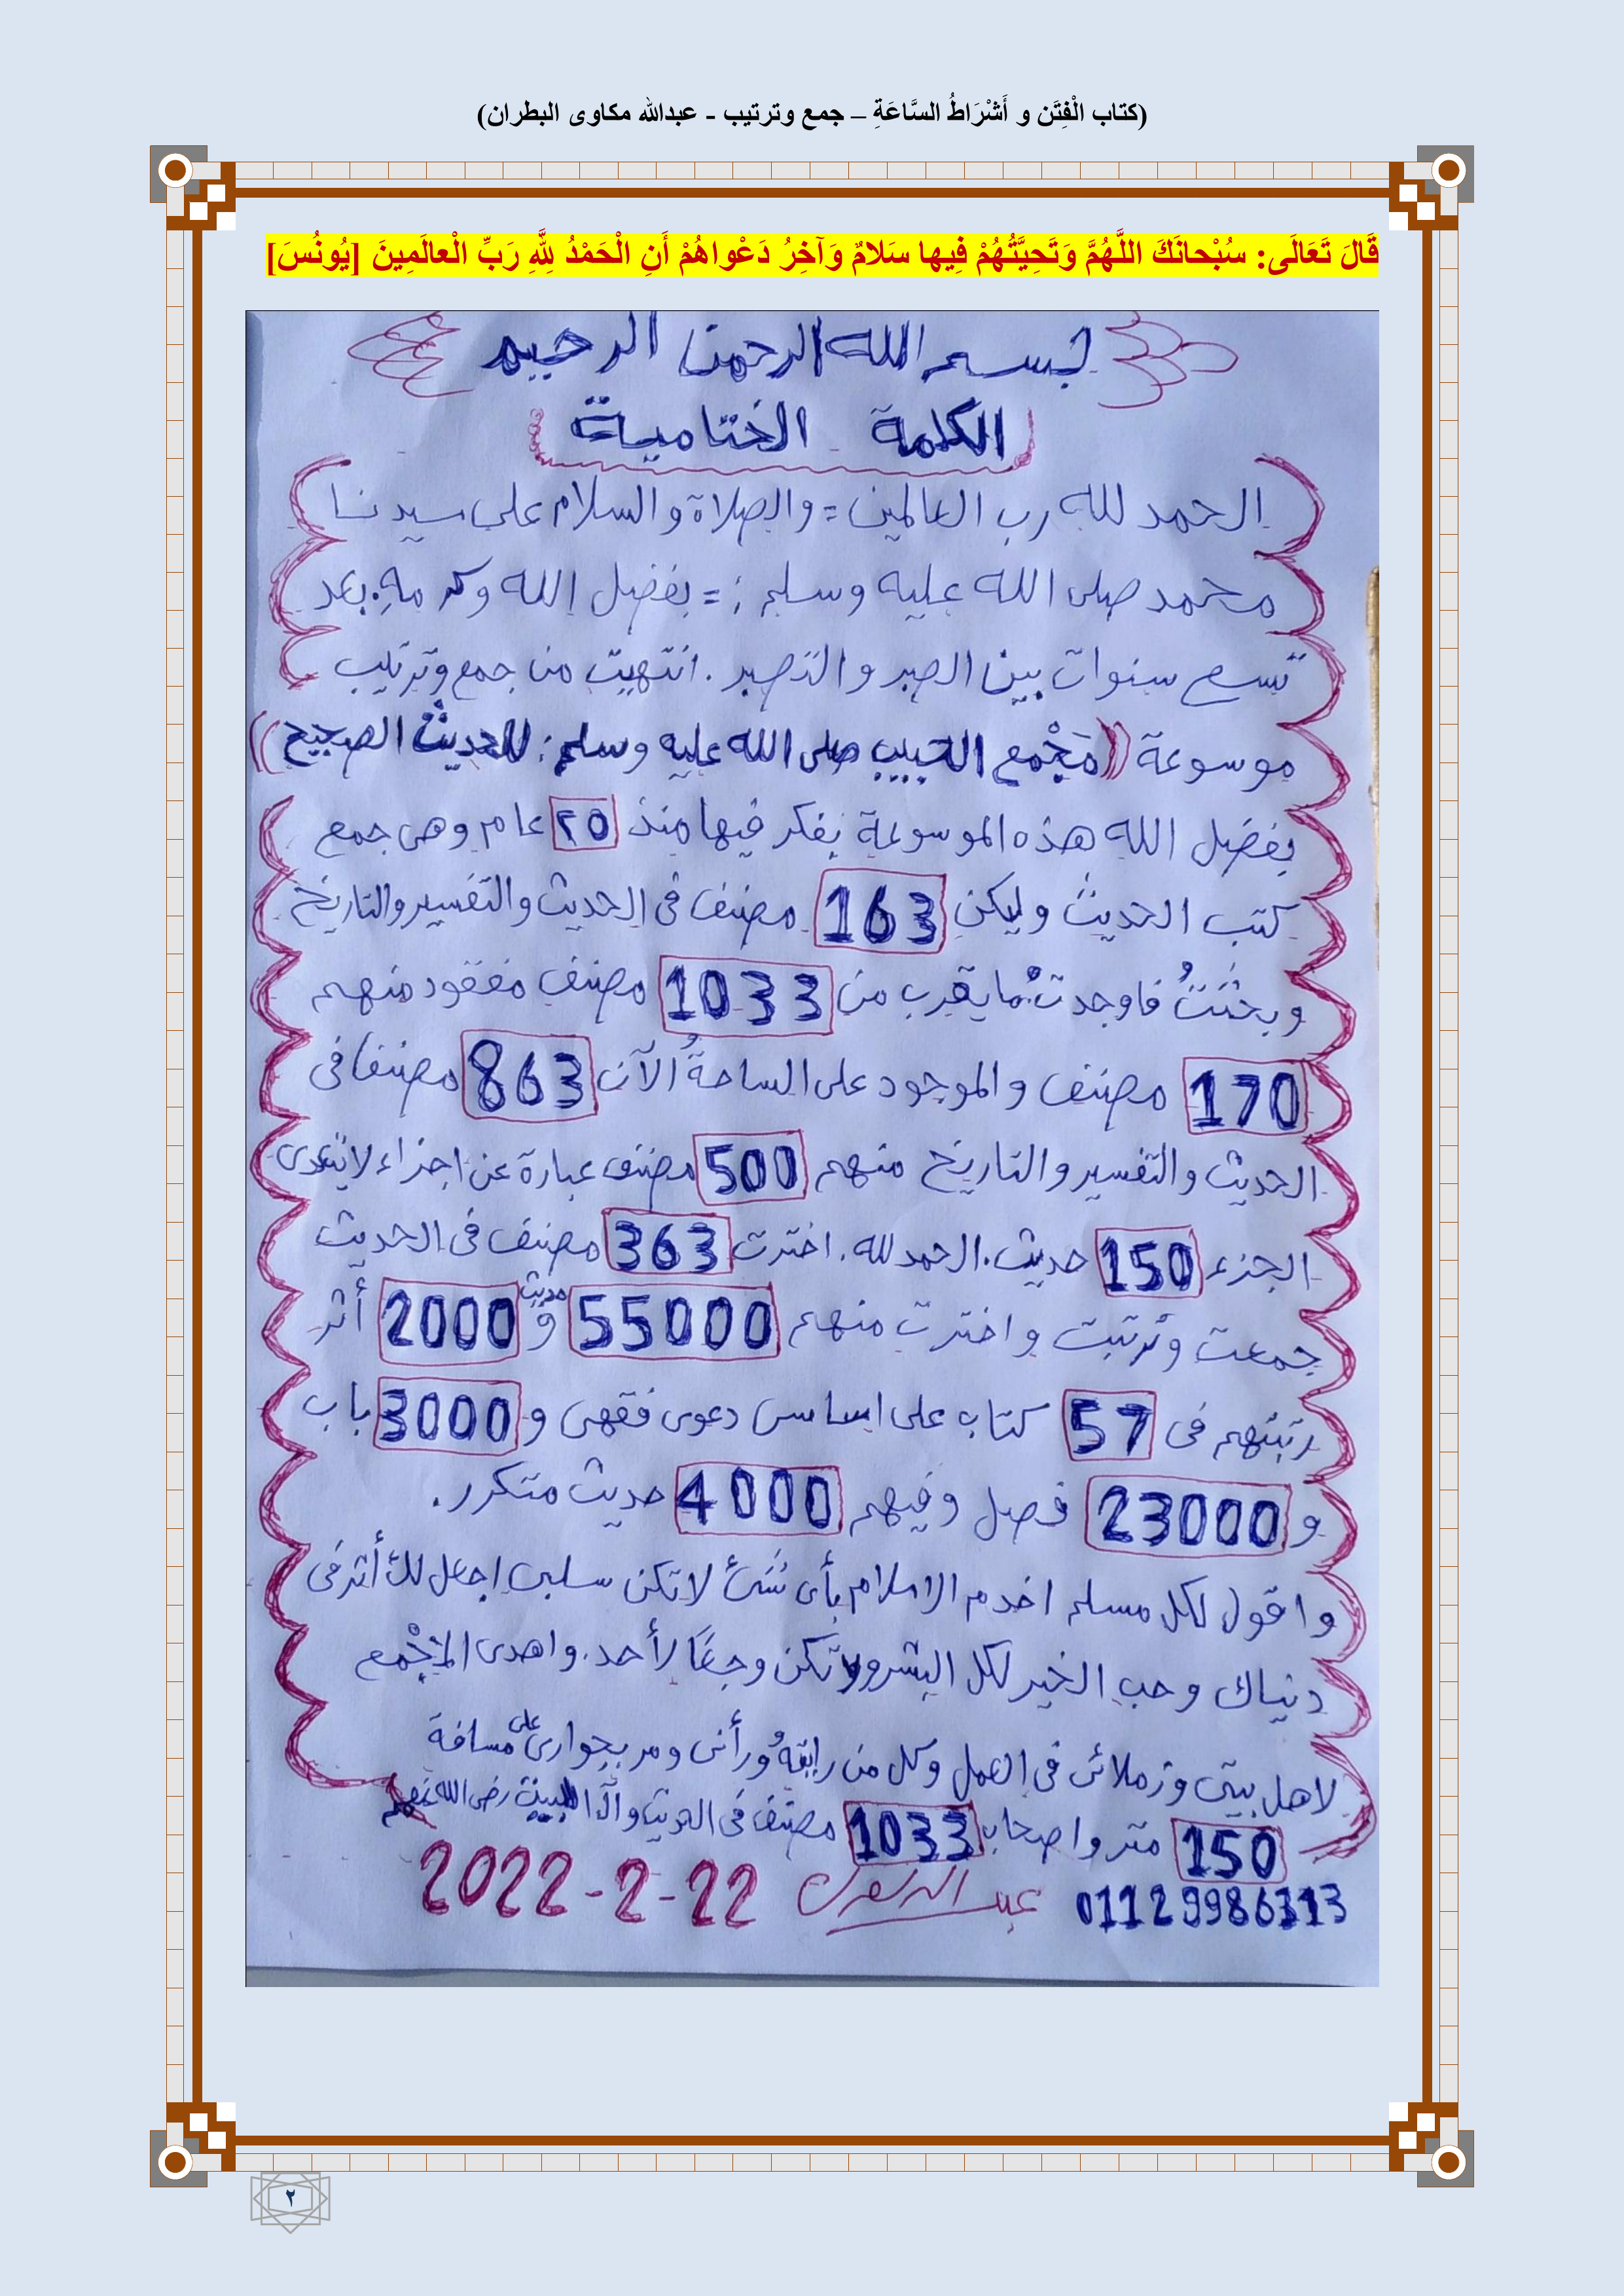 (كتاب الْفِتَن و أَشْرَاطُ السَّاعَةِ – جمع وترتيب - عبدالله مكاوى البطران)
قَالَ تَعَالَى: سُبْحانَكَ اللَّهُمَّ وَتَحِيَّتُهُمْ فِيها سَلامٌ وَآخِرُ دَعْواهُمْ أَنِ الْحَمْدُ لِلَّهِ رَبِّ الْعالَمِينَ [يُونُسَ]
بسم الله الرحمن الرحيم
الكلمة الختامية
الحمد لله رب العالمين = والصلاة والسلام على سيدنا
محمد صلى الله عليه وسلم ; = بفضل الله وكرمه . بعد
تسع سنوات بين الصبر والتصبر . انتهيت من جمع وترتيب
موسوعة ((مَجْمع الحبيب صلى الله عليه وسلم : للحديث الصحيح))
بفضل الله هذه الموسوعة بفكر فيها منذ ٢٥ عام وهى جمع
كتب الحديث وليكن 163 مصنف فى الحديث والتفسير والتاريخ
وبحثت فاوجدت ما يقرب من 1033 مصنف مفقود منهم
170 مصنف والموجود على الساحة الآن 863 مصنفا فى
الحديث والتفسير والتاريخ منهم 500 مصنف عبارة عن اجزاء لا يتعدى
الجزء 150 حديث . الحمد لله . اخترت 363 مصنف فى الحديث
جمعت وترتبت واخترت منهم 55000 حديث و 2000 أثر
رتبتهم فى 57 كتاب على اساس دعوى فقهى و 3000 باب
و 23000 فصل وفيهم 4000 حديث متكرر .
واقول لكل مسلم اخدم الاسلام بأى شئ لا تكن سلبى اجعل لك أثر فى
دنياك وحب الخير لكل البشر ولا تكن وجعًا لأحد . واهدى المجْمع
لاهل بيتى وزملائى فى العمل وكل من رايته ورأنى ومر بجوارى على مسافة
150 متر واصحاب 1033 مصنف فى الحديث وآل البيت رضى الله عنهم
01129986313 عبد الله 22-2-2022
٢